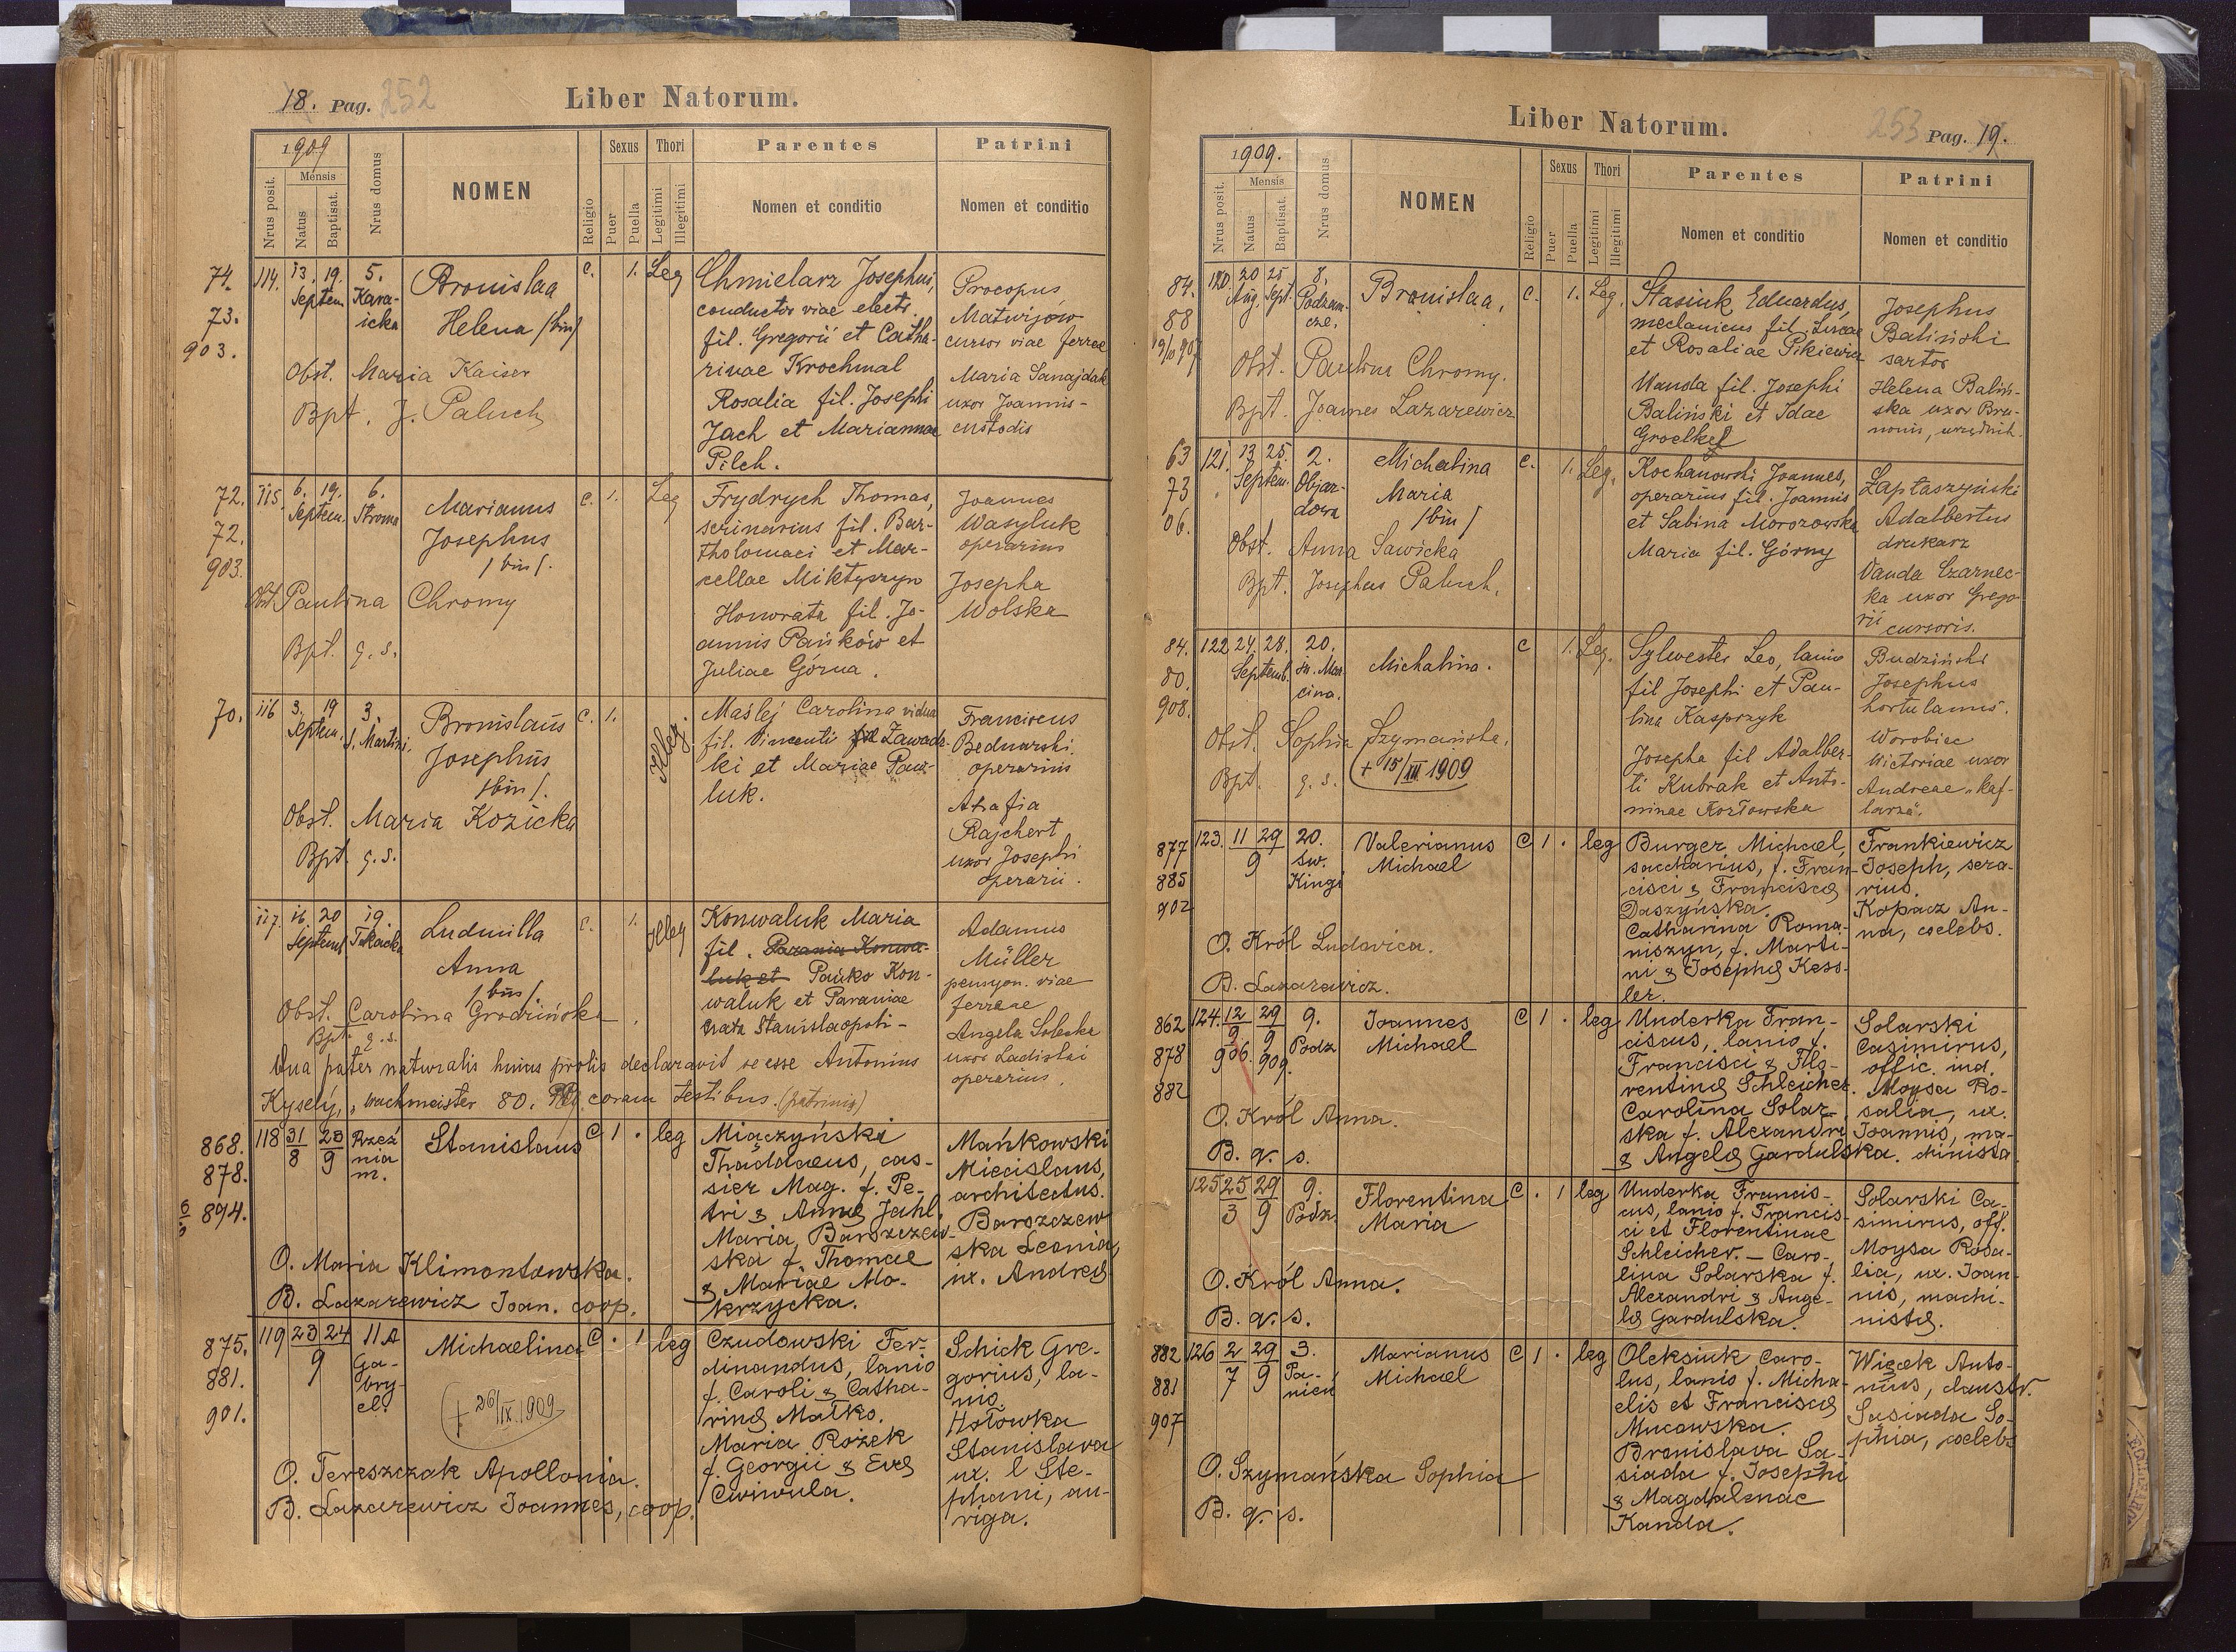 18. Pag. 252
Liber Natorum.
1909
Nrus posit.
Mensis
Natus
Baptisat.
Nrus domus
NOMEN
Religio
Sexus
Puer
Puella
Thori
Legitimi
Illegitimi
Parentes
Nomen et conditio
Patrini
Nomen et conditio
74.
73.
903.
114. 13. 19. Septem.
5. Kara-
icka
Bronislaa
Helena /bin/
C. 1. Leg
Obst. Maria Kaiser
Bpt. J. Paluch
Chmielarz Josephus,
conductor viae electr.
fil. Gregorii et Catha-
rinae Krochmal
Rosalia fil. Josephi
Jach et Mariannae
Pilch.
Procopus
Matwijów
cursor viae ferreae
Maria Sanajdak
uxor Joannis
custodis
72.
72.
903.
115. 6. 19. Septem.
6. Stroma
Marianus
Josephus
/bin/.
C. 1. Leg
Obst. Paulina Chromy
Bpt. q. s.
Frydrych Thomas,
scrinarius fil. Bar-
tholomaei et Mar-
cellae Miktyszyn
Honorata fil. Jo-
annis Pańków et
Juliae Górna.
Joannes
Wasyluk
operarius
Josepha
Wolska
70.
116 3. 19 Septem.
3. S. Martini.
Bronislaus
Josephus
/bin/.
C. 1. Illeg.
Obst. Maria Kozicka
Bpt. q. s.
Maślej Carolina vidua
fil. Vincenti Zawadz-
ki et Mariae Paw-
luk.
Franciscus
Bednarski
operarius
Atafia
Rajchert
uxor Josephi
operarii.
117. 16. 20 Septem.
19. Tkacka
Ludmilla
Anna
/bin/
C. 1. Illeg
Obst. Carolina Grodzińska
Bpt. q. s.
Konwaluk Maria
fil. Parania Konwa-
luk et Pańko Kon-
waluk et Paraniae
nata Stanislaopoli-
Adamus
Müller
pensyon. viae
ferreae
Angela Solecka
uxor Ladislai
operarius.
Qua pater naturalis huius prolis declaravit se esse Antonius
Kysely, wachmeister 80. coram testibus. (patrinis)
868.
878.
894.
118 31/8 23/9
Rzeź
nia
m.
Stanislaus
C 1 . leg
O. Maria Klimontowska.
B. Lazarewicz Joan. coop.
Miączyński
Thaddaeus, cas-
sier Mag. f. Pe-
tri & Annae Jahl.
Maria Barszczew-
ska f. Thomae
& Mariae Mo-
krzycka.
Mańkowski
Miecislaus,
architectus.
Barszczew
ska Leonia,
ux. Andreae
875.
881.
901.
119 23 24 9
11A
Ga-
bry-
el.
Michaelina
C . 1 leg
+ 26/IX 1909
O. Tereszczak Apollonia.
B. Lazarewicz Joannes, coop.
Czudowski Fer-
dinandus, lanio
f. Caroli & Catha-
rinae Matko.
Maria Rożek
f. Georgii & Evae
Cwiwula.
Schick Gre-
gorius, la-
nio.
Hołowka
Stanislava
ux. Ste-
phani, au-
riga.
Liber Natorum.
253 Pag. 19.
1909.
Nrus posit.
Mensis
Natus
Baptisat.
Nrus domus
NOMEN
Religio
Sexus
Puer
Puella
Thori
Legitimi
Illegitimi
Parentes
Nomen et conditio
Patrini
Nomen et conditio
84.
88
120. 20 Aug. 25 Sept.
8. Podzam-
cze.
Bronislaa.
C. 1. Leg.
Obst. Paulina Chromy.
Bpt. Joannes Lazarewicz
Stasiuk Eduardus,
mechanicus fil. Lucae
et Rosaliae Pikiewicz
Wanda fil. Josephi
Baliński et Idae
Groelkel
Josephus
Baliński
sartor
Helena Baliń-
ska uxor Bru-
nonis, urzędnik.
63
73
06.
121. 13 25. Septem.
2. Objaz-
dowa
Michalina
Maria
/bin/
C. 1. Leg.
Obst. Anna Sawicka
Bpt. Josephus Paluch.
Kochanowski Joannes,
operarius fil. Joannis
et Sabina Morozowska
Maria fil. Górny
Łaptaszyński
Adalbertus
drukarz
Vanda Czarnec-
ka uxor Grego-
rii cursoris.
84.
80.
908.
122 24. 28. Septemb.
20. św. Mar-
cina.
Michalina.
C 1. Leg.
Obst. Sophia Szymańska.
+ 15/XII 1909
Bpt. q. s.
Sylwester Leo, lanio
fil Josephi et Pau-
lina Kasprzyk
Josepha fil Adalber-
ti Kubrak et Anto-
ninae Kozłowska
Budziński
Josephus
hortulanus.
Worobiec
Wictoriae uxor
Andreae "kaf-
larza".
877
885
902
123. 11 29 9
20.
św.
Kingi
Valerianus
Michael
C 1 . leg
O. Król Ludovica.
B. Lazarewicz.
Burger Michael,
saccharius, f. Fran-
cisci & Franciscae
Daszyńska.
Catharina Roma-
niszyn, f. Marti-
ni & Josephae Kess-
ler.
Frankiewicz
Joseph, sera-
rius.
Kopacz An-
na, coelebs.
862
878
882
124. 12/9 906. 29/9 909.
9.
Podz
Joannes
Michael
C 1 . leg
O. Król Anna.
B. q. s.
Underka Fran-
ciscus, lanio f.
Francisci & Flo-
rentinae Schleicher.
Carolina Solar-
ska f. Alexandri
& Angelae Gardulska.
Solarski
Casimirus,
offic. ind.
Moysa Ro-
salia, ux.
Joannis, ma-
chinista.
125 25/3 29/9
9.
Podz.
Florentina
Maria
C . 1 leg
O. Król Anna.
B. q. s.
Underka Francis-
cus, lanio f. Francis-
ci et Florentinae
Schleicher. — Caro-
lina Solarska f.
Alexandri & Ange-
lae Gardulska.
Solarski Ca-
simirus, off.
Moysa Rosa-
lia, ux. Joan-
nis, machi-
nistae.
882
881
907
126 2/7 29/9
3.
Pa-
nień
Marianus
Michael
C 1 . leg
O. Szymańska Sophia
B. q. s.
Oleksiuk Caro-
lus, lanio f. Micha-
elis et Franciscae
Mucowska.
Bronislava Sa-
siada f. Josephi
& Magdalenae
Kanda.
Więcek Anto-
nius, claustr.
Sąsiada So-
phia, coelebs